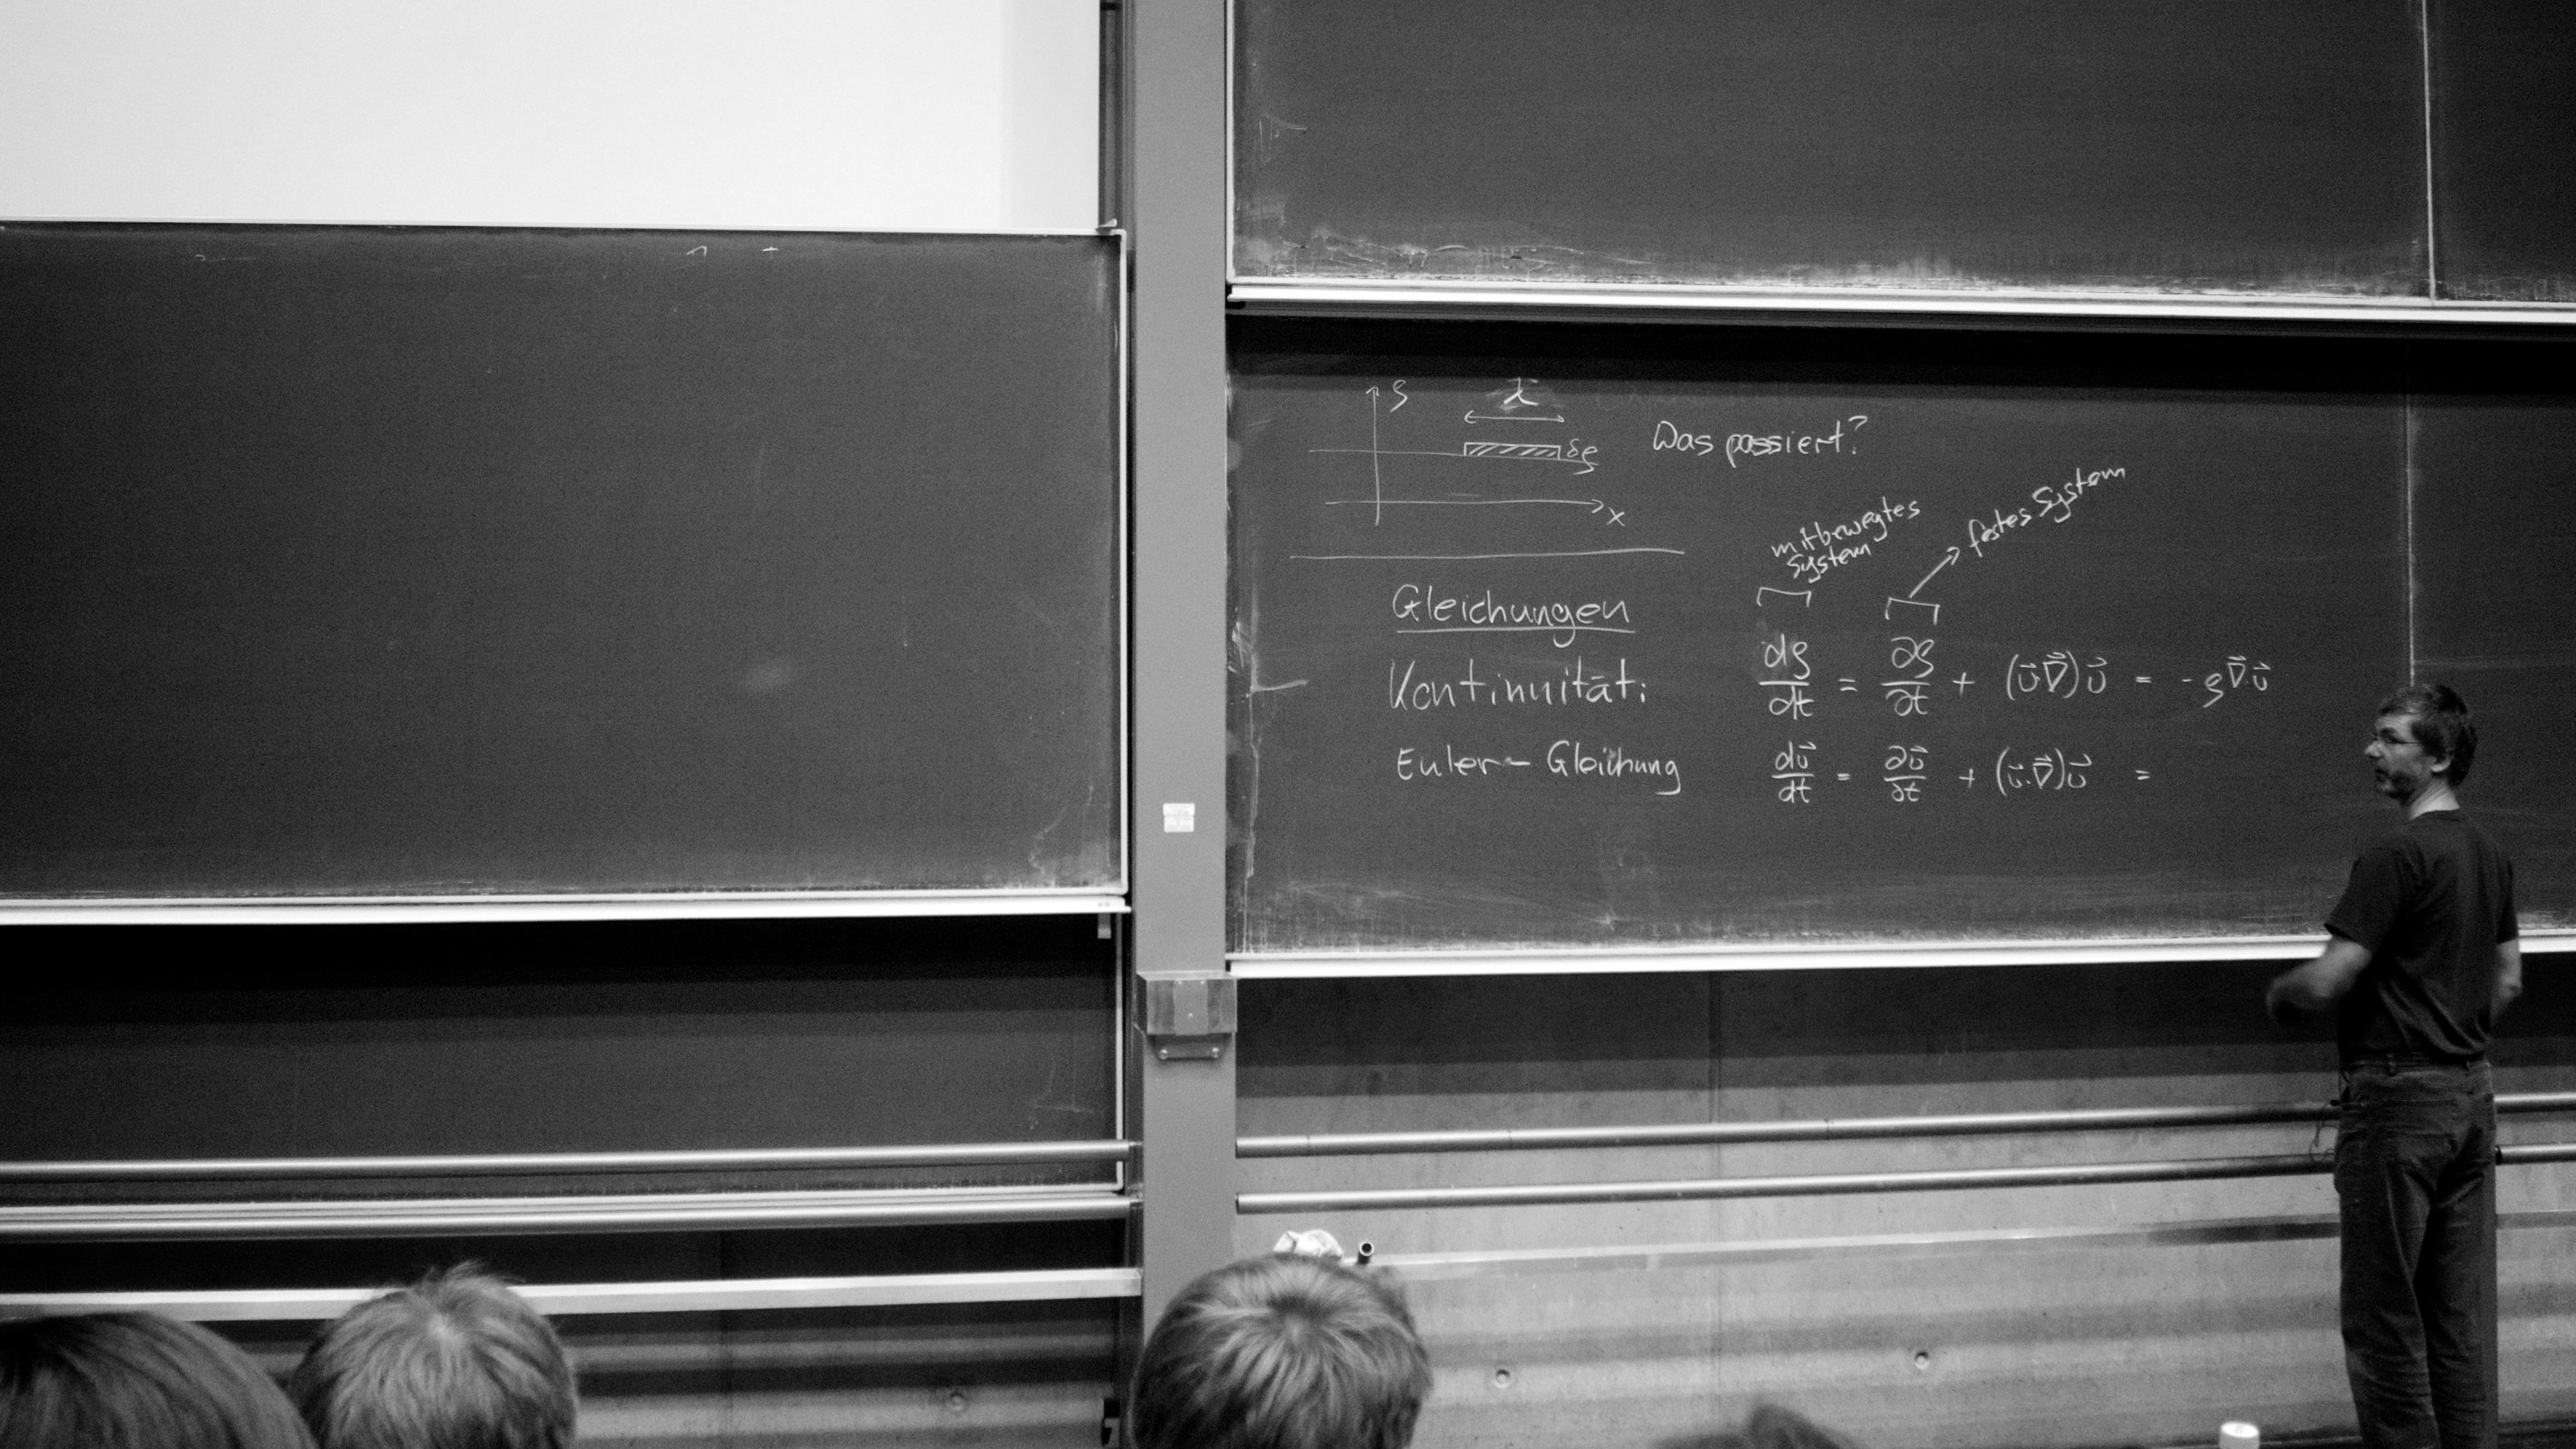 ρ
λ
δρ
Was passiert?
x
mitbewegtes
System
festes System
Gleichungen
Kontinuität: dρ/dt = ∂ρ/∂t + (v⃗∇⃗)v⃗ = -ρ∇⃗·v⃗
Euler-Gleichung dv⃗/dt = ∂v⃗/∂t + (v⃗·∇⃗)v⃗ =